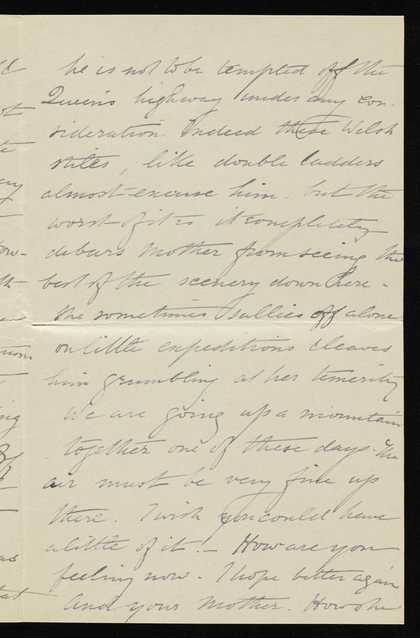 he is not to be tempted off the
Queen's highway under any con-
sideration. Indeed these Welsh
stiles, like double ladders
almost excuse him. but the
worst of it is it completely
debars Mother from seeing the
best of the scenery down here -
She sometimes sallies off alone
on little expeditions & leaves
him grumbling at her temerity
We are going up a mountain
together one of these days. The
air must be very fine up
there. I wish you could have
a little of it. - How are you
feeling now. I hope better again
And your Mother. How she